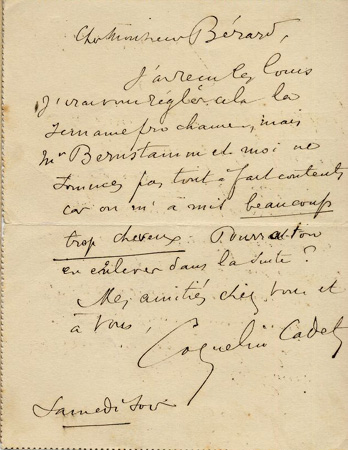 Cher Monsieur Bérard,
J'ai reçu les
J'irai vous régler cela la
semaine prochaine, mais
Mr Bernstamm et moi ne
sommes pas tout à fait contents
car on m'a mis beaucoup
trop cheveux. Pourrait on
en enlever dans la suite ?
Mes amitiés chez vous et
à vous,
Coquelin Cadet
Samedi soir